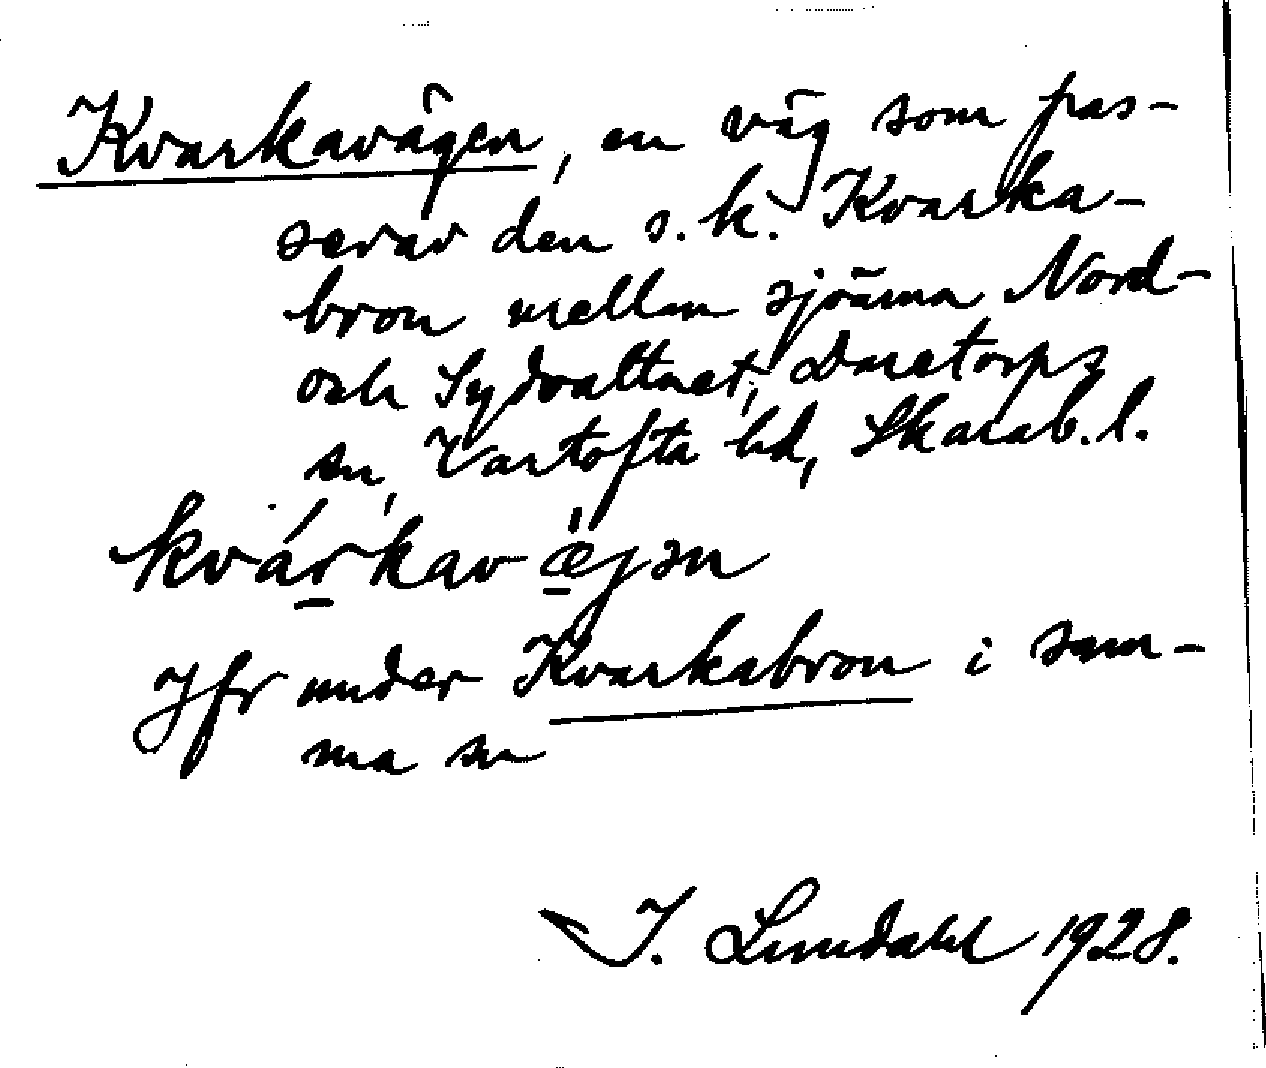 Kvarkavägen, en väg som pas-
serar den s.k. Kvarka-
bron mellan sjöarna Nord-
och Sydvattnet, Daretorps
sn, Vartofta hd, Skarab.l.
kvárkavæjən
Jfr under Kvarkabron i sam-
ma sn
J. Lundahl 1928.